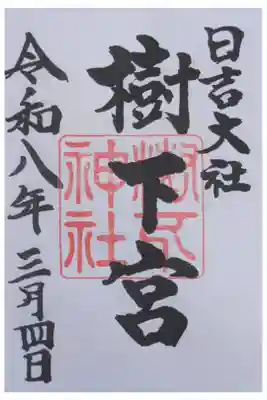 日吉大社
樹下宮
樹下神社
令和八年三月四日